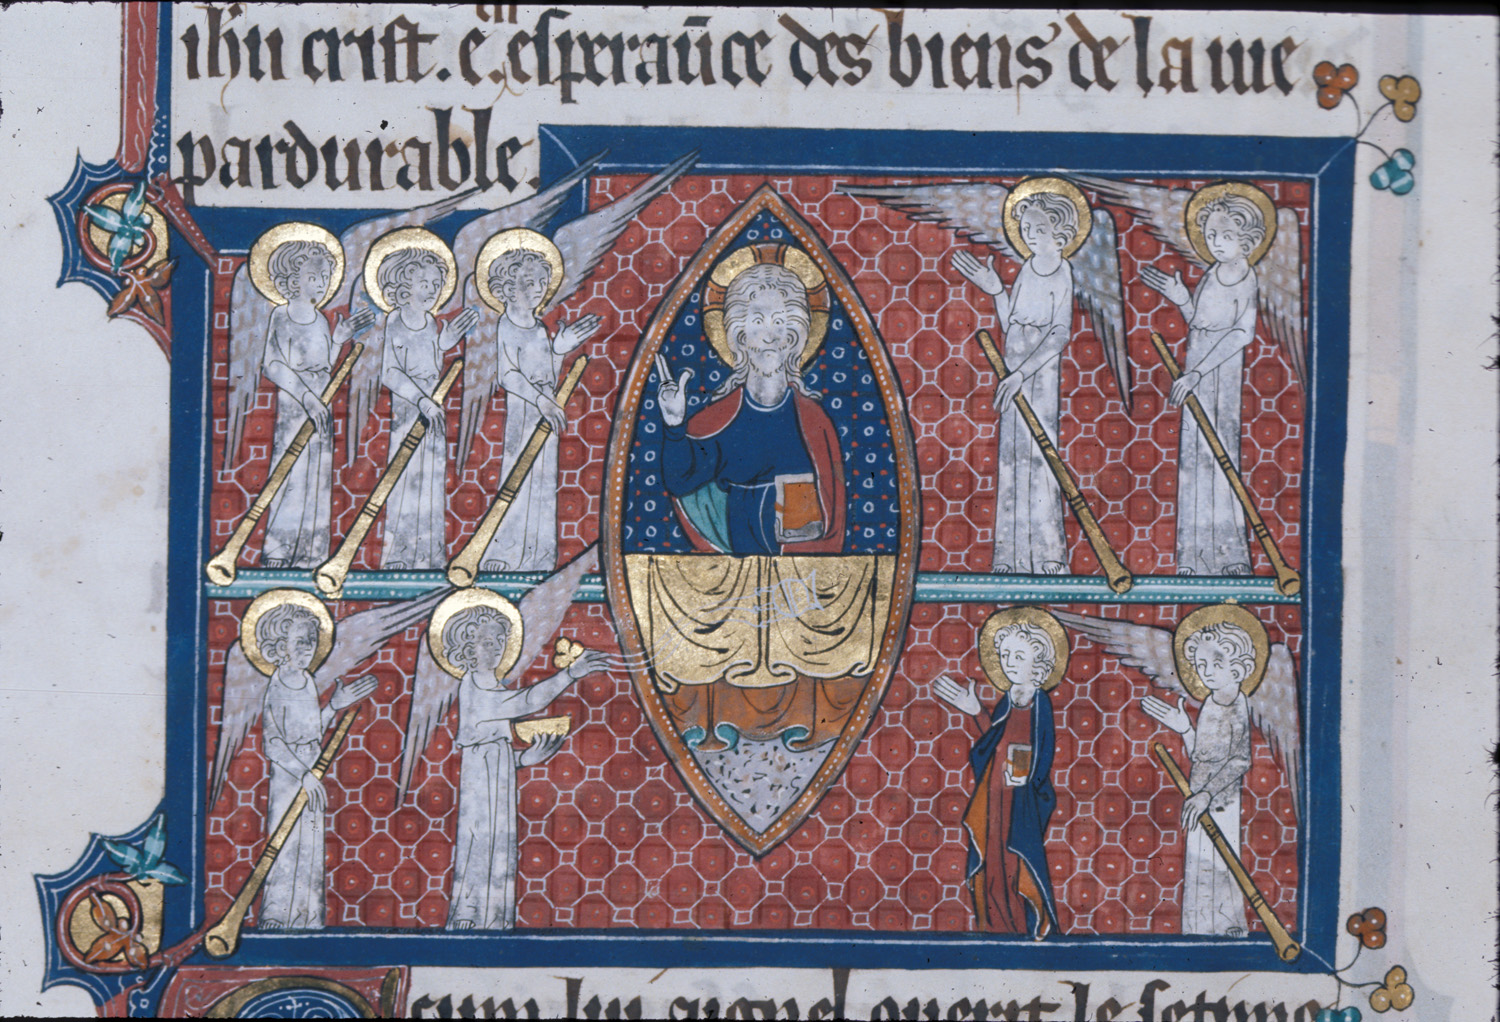 ih̄u crist. e. esperaūce des biens de la uie
pardurable.
cum lui aignel ouerit le setime